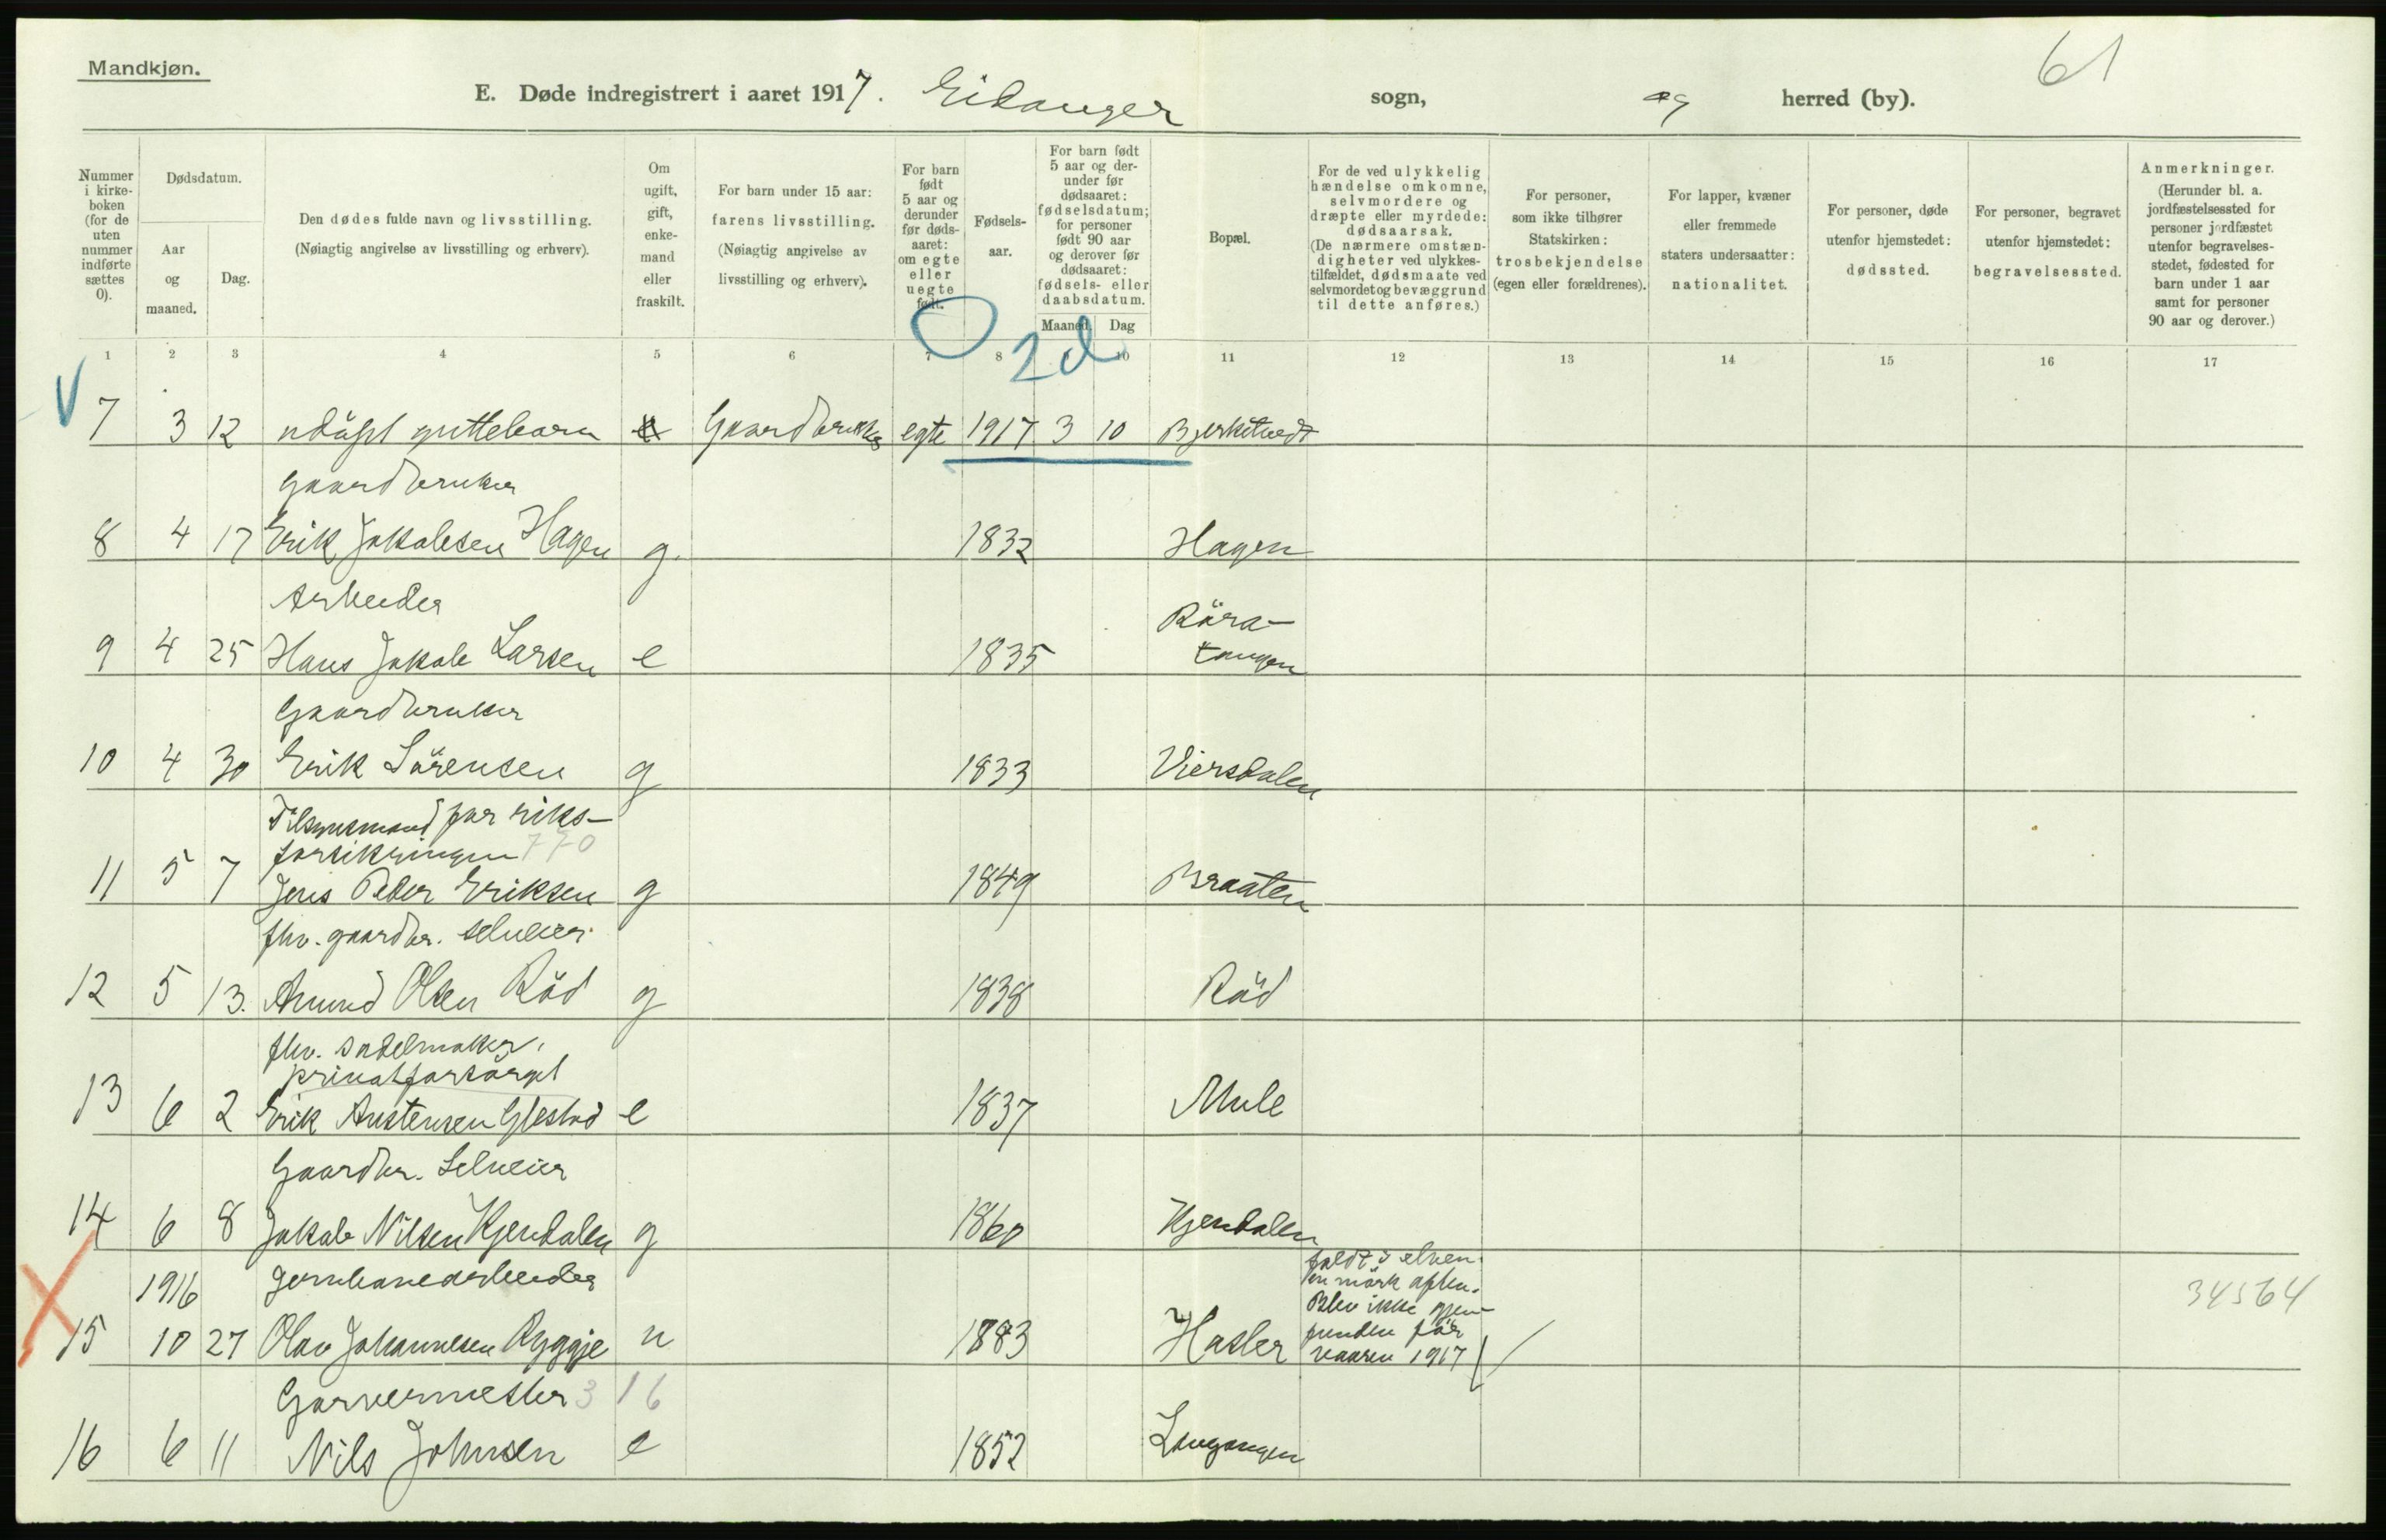 Mandkjøn.
61
E. Døde indregistrert i aaret 1917. Eidanger sogn, og herred (by).
Nummer i kirkeboken (for de uten nummer indførte sættes 0).
Dødsdatum.
Aar og maaned.
Dag.
Den dødes fulde navn og livsstilling. (Nøiagtig angivelse av livsstilling og erhverv).
Om ugift, gift, enkemand eller fraskilt.
For barn under 15 aar: farens livsstilling. (Nøiagtig angivelse av livsstilling og erhverv).
For barn født 5 aar og derunder før dødsaaret: om egte eller uegte født.
Fødselsaar.
For barn født 5 aar og derunder før dødsaaret: fødselsdatum; for personer født 90 aar og derover før dødsaaret: fødsels- eller daabsdatum.
Maaned. Dag
Bopæl.
For de ved ulykkelig hændelse omkomne, selvmordere og dræpte eller myrdede: dødsaarsak. (De nærmere omstændigheter ved ulykkestilfældet, dødsmaate ved selvmordet og bevæggrund til dette anføres.)
For personer, som ikke tilhører Statskirken: trosbekjendelse (egen eller forældrenes).
For lapper, kvæner eller fremmede staters undersaatter: nationalitet.
For personer, døde utenfor hjemstedet: dødssted.
For personer, begravet utenfor hjemstedet: begravelsessted.
Anmerkninger. (Herunder bl. a. jordfæstelsessted for personer jordfæstet utenfor begravelsesstedet, fødested for barn under 1 aar samt for personer 90 aar og derover.)
1 2 3 4 5 6 7 8 10 11 12 13 14 15 16 17
2d
7 3 12 udöpt guttebarn Gaardbruker egte 1917 3 10 Bjerketvedt
Gaardbruker
8 4 17 Erik Jakobsen Hagen g. 1832 Hagen
Arbeider
9 4 25 Hans Jakob Larsen e 1835 Röra-
tangen
Gaardbruker
10 4 30 Erik Sörensen g 1833 Viersdalen
Tilsynsmand for riks-
forsikringen 770
11 5 7 Jens Peder Eriksen g 1849 Braaten
fhv. gaardbr. selveier
12 5 13. Amund Olsen Röd g 1838 Röd
fhv. sadelmaker,
privatforsörget
13 6 2 Erik Austensen e 1837 Mule
Gaardbr. Selveier
14 6 8 Jakob Nilsen Kjendalen g 1860 Kjendalen
1916 Jernbanearbeider
15 10 27 Olav Johannesen Ryggje u 1883 Hasler
faldt i elven
en mörk aften.
Blev ikke gjen-
funden för
vaaren 1917
34564
Garvermester 316
16 6 11 Nils Johnsen e 1852 Langangen